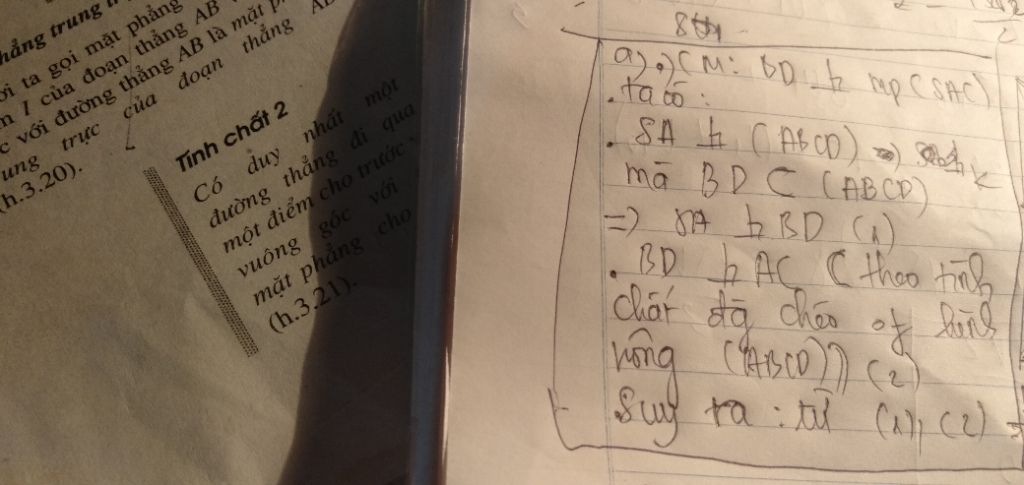 ẳng trung tr
ời ta gọi mặt phẳng
n I của đoạn thẳng AB
c với đường thẳng AB là mặt p
ung trực của đoạn thẳng AB
(h.3.20).
Tính chất 2
Có duy nhất một
đường thẳng đi qua
một điểm cho trước
vuông góc với
mặt phẳng cho
(h.3.21).
a) CM: BD ⊥ mp (SAC)
. ta có:
. SA ⊥ (ABCD)
mà BD ⊂ (ABCD)
=> SA ⊥ BD (1)
. BD ⊥ AC ( theo tính
chất đg chéo of hình
vuông (ABCD)) (2)
Suy ra : từ (1), (2)